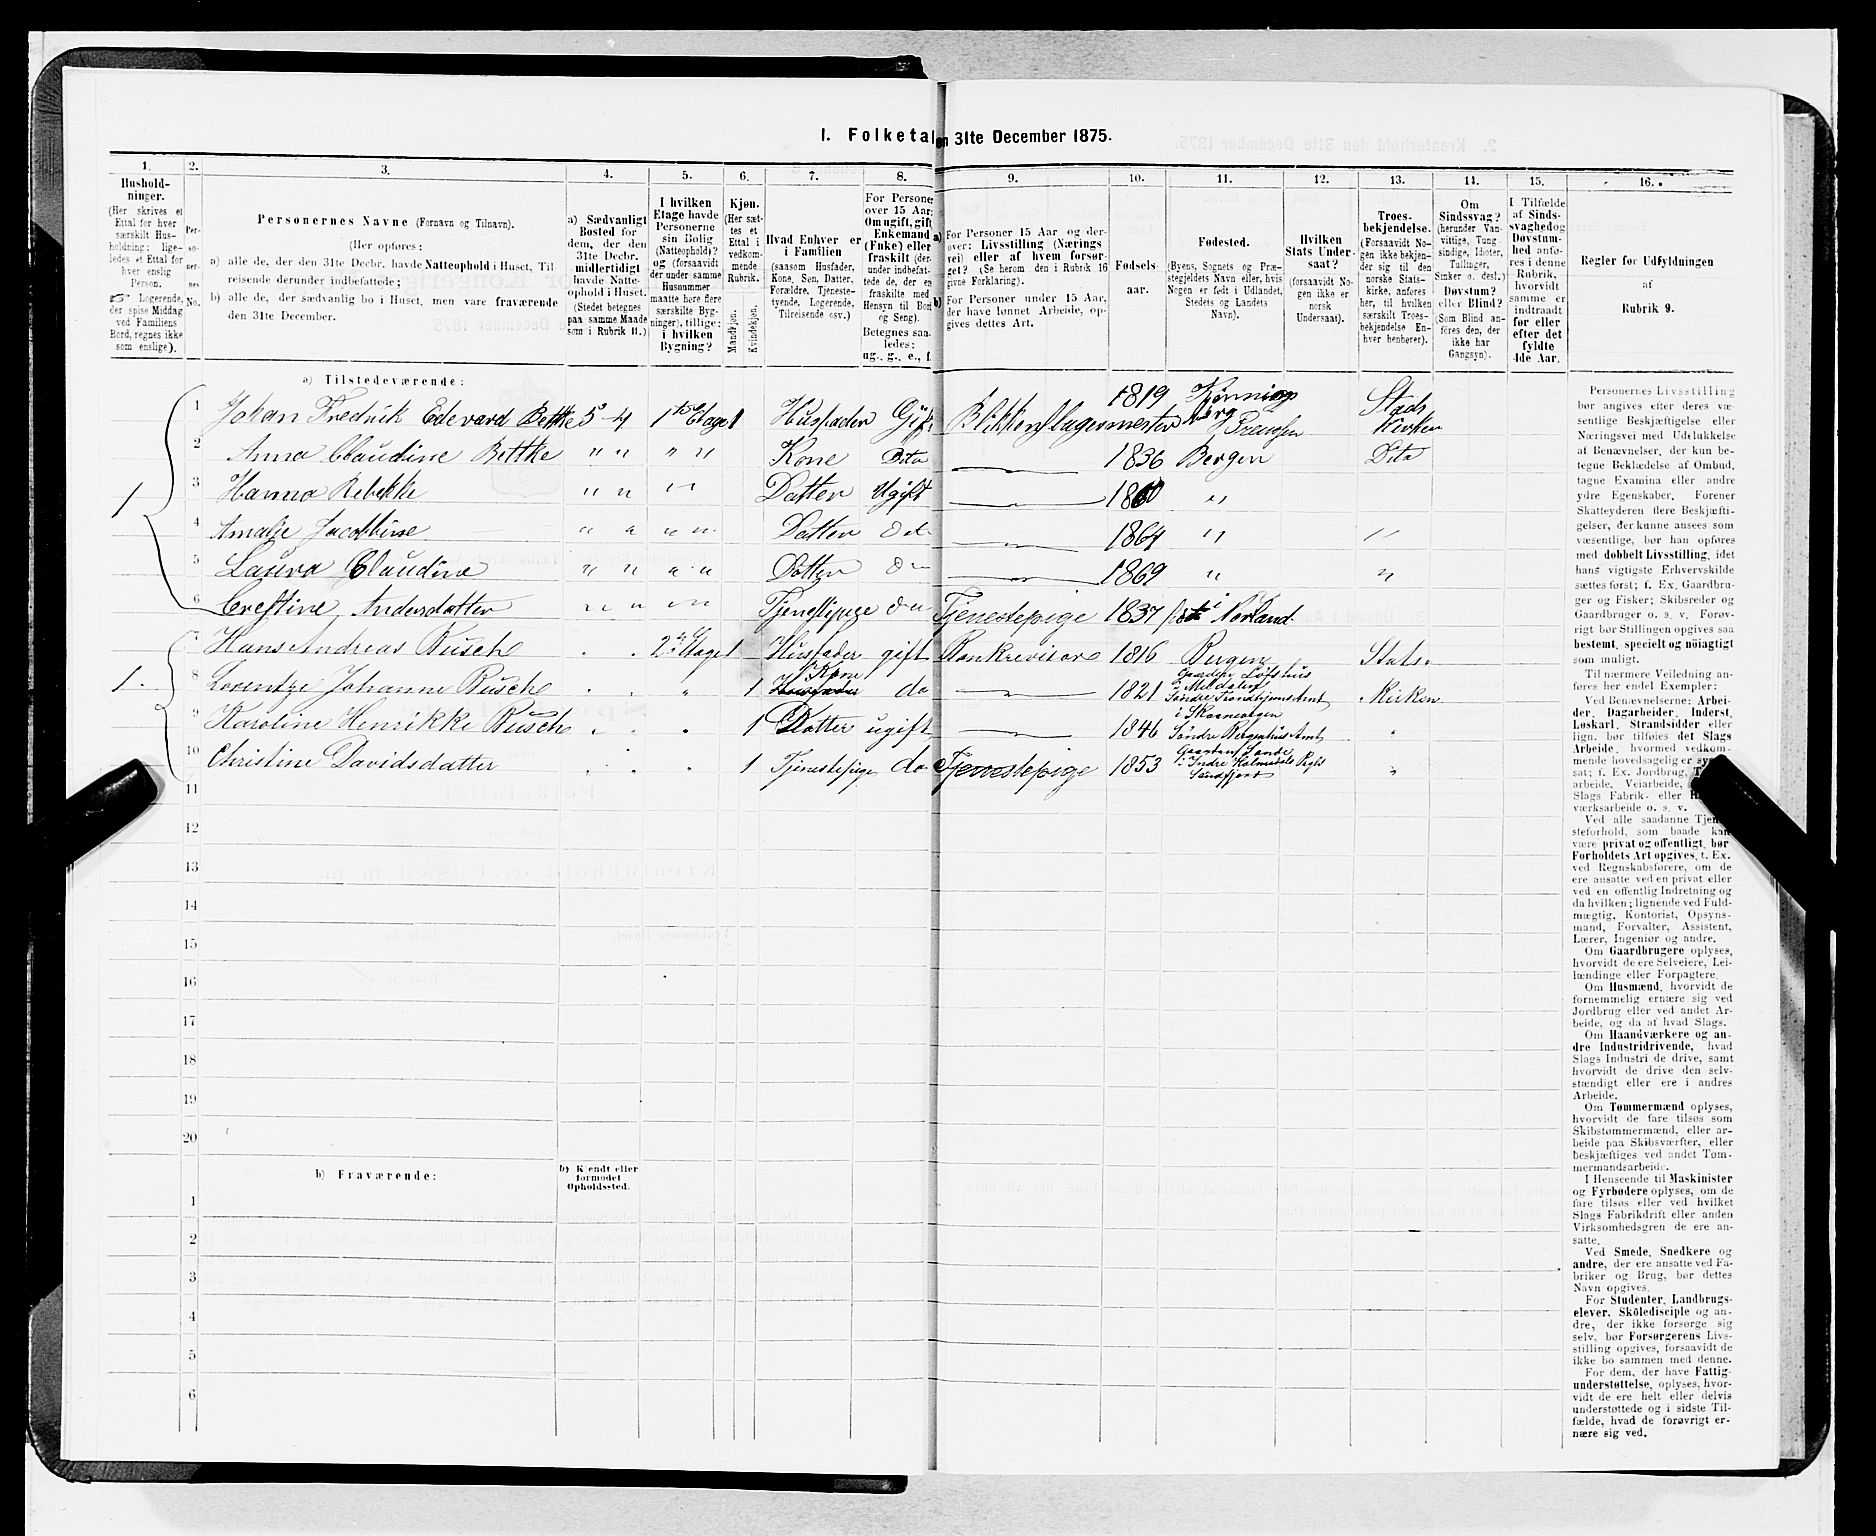 I. Folketal
en 31te December 1875.
1.
2.
3.
4.
5.
6.
7.
8.
9.
10.
11.
12.
13.
14.
15.
16.
Hushold-
ninger.
(Her skrives et
Ettal for hver
særskilt Hus-
holdning; lige-
ledes et Ettal for
hver enslig
Person.
☞ Logerende,
der spise Middag
ved Familiens
Bord, regnes ikke
som enslige).
Per-
so-
ner-
nes
No.
Personernes Navne (Fornavn og Tilnavn).
(Her opføres:
a) alle de, der den 31te Decbr. havde Natteophold i Huset, Til-
reisende derunder indbefattede;
b) alle de, der sædvanlig bo i Huset, men vare fraværende
den 31te December.
a) Sædvanligt
Bosted for
dem, der den
31te Decbr.
midlertidigt
havde Natte-
ophold i Huset.
(Stedet betegnes
paa samme Maade
som i Rubrik 11.)
I hvilken
Etage havde
Personerne
sin Bolig
(Natteophold)?
og (forsaavidt
der under samme
Husnummer
maatte høre flere
særskilte Byg-
ninger), tillige:
i hvilken
Bygning?
Kjøn.
(Her sæt-
tes et
Ettal i
vedkom-
mende
Rubrik.
Mandkjøn.
Kvindekjøn.
Hvad Enhver er
i Familien
(saasom Husfader,
Kone, Søn, Datter,
Forældre, Tjeneste-
tyende, Logerende,
Tilreisende osv.)
For Persone
over 15 Aar:
Om ugift, gift
Enkemand
(Enke) eller
fraskilt (der-
under indbefat-
tede de, der er
fraskilte med
Hensyn til Bord
og Seng).
Betegnes saa-
ledes:
ug., g., e., f.
a) For Personer 15 Aar og der-
over: Livsstilling (Nærings
vei) eller af hvem forsør-
get? (Se herom den i Rubrik 16
givne Forklaring).
b) For Personer under 15 Aar,
der have lønnet Arbeide, op-
gives dettes Art.
Fødsels-
aar.
Fødested.
(Byens, Sognets og Præ-
stegjeldets Navn eller, hvis
Nogen er født i Udlandet,
Stedets og Landets
Navn).
Hvilken
Stats Under-
saat?
(forsaavidt No-
gen ikke er
norsk
Undersaat).
Troes-
bekjendelse.
(Forsaavidt No-
gen ikke bekjen-
der sig til den
norske Stats-
kirke, anføres
her, til hvilken
særskilt Troes-
bekjendelse En-
hver henhører).
Om
Sindssvag?
(herunder Van-
vittige, Tung-
sindige, Idioter,
Tullinger,
Sinker o. desl.)
Døvstum?
eller Blind?
(Som Blind an-
føres den, der
ikke har
Gangsyn).
I Tilfælde
af Sinds-
svaghed og
Døvstum-
hed anfø-
res i denne
Rubrik,
hvorvidt
samme er
indtraadt
før eller
efter det
fyldte
4de Aar.
Regler for Udfyldningen
af
Rubrik 9.
a) Tilstedeværende:
1 Johan Fredrik Edevard Bettke 5-4 1ste Etage 1 Husfader Gift Blikkenslagermester 1819 Kønnings berg Preussen Stads Kirken
2 Anna Claudine Bettke " " " " Kone Dito 1836 Bergen Dito
1
3 Hanna Rebekke " " " " Datter Ugift 1860 "
4 Amalie Jacobbine " " " " Datter do 1864 " "
5 Laura Claudine " " " " Datter do 1869 " "
6 Crestine Andersdatter " " " " Tjenestepige do Tjenestepige 1837 født i Norland
7 Hans Andreas Busch 2den Etage 1 Husfader gift Bankrevisor 1816 Bergen Stats-
1. 8 Lorentze Johanne Busch " Kone do 1821 Gaarden Lofthus i Meldalen Søndre Trondhjems Amt Kirken
9 Karoline Henrikke Busch " 1 Datter ugift 1846 i Skonevigen Søndre Bergenhus Amt "
10 Christine Davidsdatter " 1 Tjenestepige do Tjenestepige 1853 Gaarden Sande i Indre Holmedals Prgld Søndfjord "
11
12
13
14
15
16
17
18
19
20
b) Fraværende:
b) Kjendt eller
formodet
Opholdssted.
1
2
3
4
5
6
Personernes Livsstilling
bør angives efter deres væ-
sentlige Beskjæftigelse eller
Næringsvei med Udelukkelse
af Benævnelser, der kun be-
tegne Beklædelse af Ombud,
tagne Examina eller andre
ydre Egenskaber. Forener
Skatteyderen flere Beskjæfti-
gelser, der kunne ansees som
væsentlige, bør han opføres
med dobbelt Livsstilling, idet
hans vigtigste Erhvervskilde
sættes først; f. Ex. Gaardbru-
ger og Fisker; Skibsreder og
Gaardbruger o. s. v. Forøv-
rigt bør Stillingen opgives saa
bestemt, specielt og nøiagtigt
som muligt.
Til nærmere Veiledning an-
føres her endel Exempler:
Ved Benævnelserne: Arbei-
der, Dagarbeider, Inderst,
Løskarl, Strandsidder eller
lign. bør tilføies det Slags
Arbeide, hvormed vedkom-
mende hovedsagelig er sys
sat; f. Ex. Jordbrug, T
arbeide, Veiarbeide,
Slags Fabrik- eller H
værksarbeide o. s. v.
Ved alle saadanne Tjen
steforhold, som baade kan
være privat og offentligt, bør
Forholdets Art opgives, f. Ex.
ved Regnskabsførere, om de
ere ansatte ved en privat eller
ved en offentlig Indretning og
da hvilken; lignende ved Fuld-
mægtig, Kontorist, Opsyns-
mand, Forvalter, Assistent,
Lærer, Ingeniør og andre.
Om Gaardbrugere oplyses,
hvorvidt de ere Selveiere, Lei-
lændinge eller Forpagtere.
Om Husmænd, hvorvidt de
fornemmelig ernære sig ved
Jordbrug eller ved andet Ar-
beide, og da af hvad Slags.
Om Haandværkere og an-
dre Industridrivende, hvad
Slags Industri de drive, samt
hvorvidt de drive den selv-
stændigt eller ere i andres
Arbeide.
Om Tømmermænd oplyses,
hvorvidt de fare tilsøs som
Skibstømmermænd, eller ar-
beide paa Skibsværfter, eller
beskjæftiges ved andet Tøm-
mermandsarbeide.
I Henseende til Maskinister
og Fyrbødere oplyses, om de
fare tilsøs eller ved hvilket
Slags Fabrikdrift eller anden
Virksomhedsgren de ere an-
satte.
Ved Smede, Snedkere og
andre, der ere ansatte ved Fa-
briker og Brug, bør dettes
Navn opgives.
For Studenter, Landbrugs-
elever, Skoledisciple og an-
dre, der ikke forsørge sig
selv, bør Forsørgerens Livs-
stilling opgives, forsaavidt de
ikke bo sammen med denne.
For dem, der have Fattig-
understøttelse, oplyses, hvor-
vidt de ere helt eller delvis
understøttede og i sidste Til-
fælde, hvad de forøvrigt er-
nære sig ved.